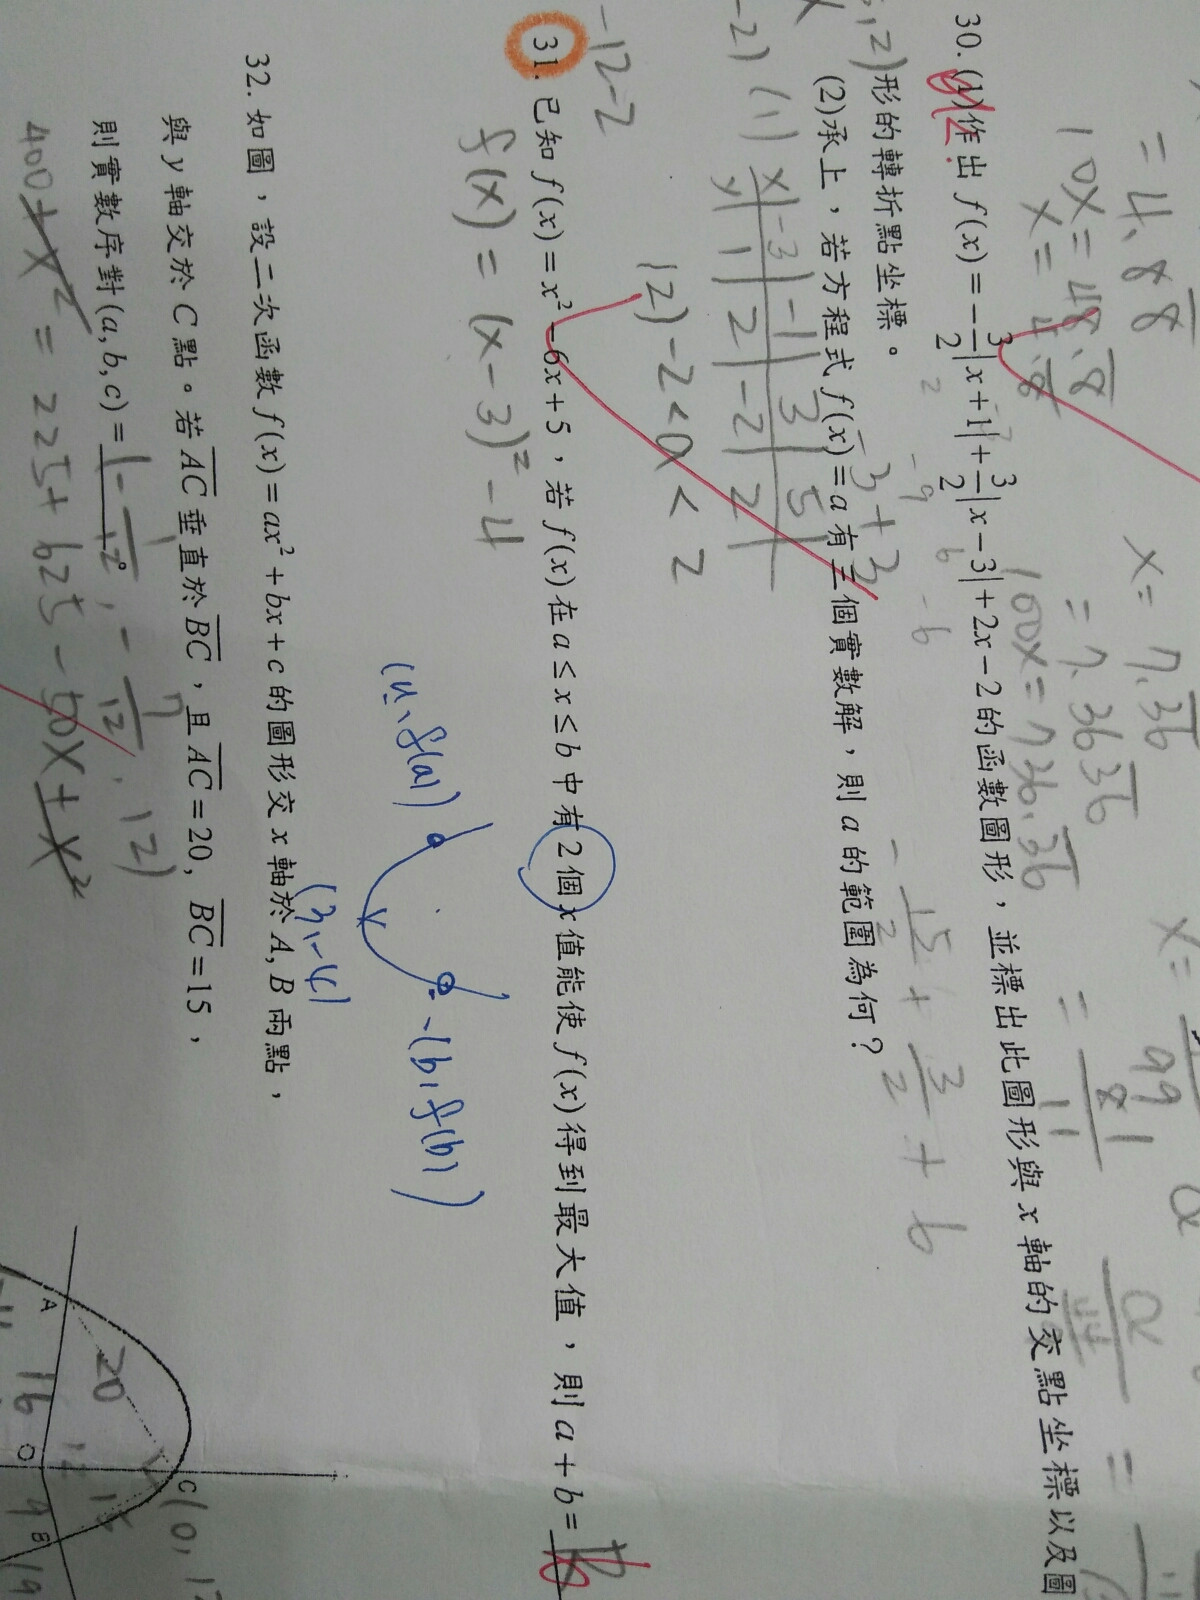 = 4.88
10x = 48.8
x = 4.8
x = 7.36
= 7.3636
100x = 736.36
30. (1)作出 f(x) = -3/2|x+1| + 3/2|x-3| + 2x - 2 的函數圖形，並標出此圖形與 x 軸的交點坐標以及圖
形的轉折點坐標。
(2)承上，若方程式 f(x) = a 有三個實數解，則 a 的範圍為何？
-3+3
-15/2 + 3/2 + 6
(1)
x -3 -1 3 5
y 1 2 -2 2
(2) -2 < a < 2
-12-2
31. 已知 f(x) = x² - 6x + 5，若 f(x) 在 a ≤ x ≤ b 中有 2 個 x 值能使 f(x) 得到最大值，則 a + b = 6
f(x) = (x-3)² - 4
(a, f(a))
(b, f(b))
(3, -4)
32. 如圖，設二次函數 f(x) = ax² + bx + c 的圖形交 x 軸於 A, B 兩點，
與 y 軸交於 C 點。若 AC 垂直於 BC，且 AC = 20, BC = 15，
則實數序對(a, b, c) = (-1/12, -7/12, 12)
400 + x² = 225 + 625 - 50x + x²
A
20
16
O
12
15
9
B
C